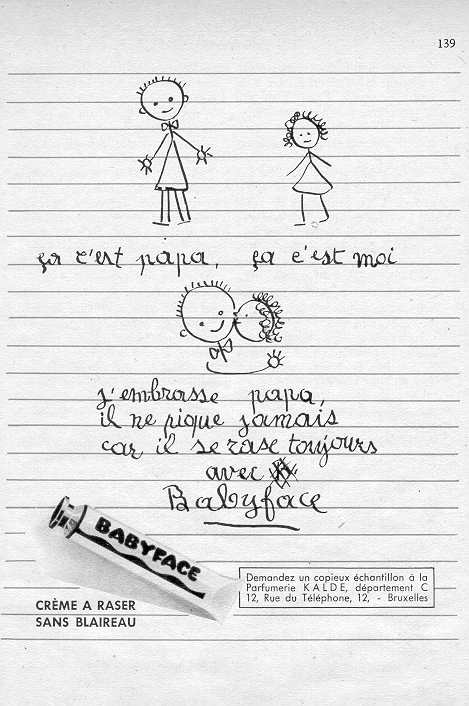 139
ça c'est papa, ça c'est moi
j'embrasse papa,
il ne pique jamais
car il se rase toujours
avec
Babyface
BABYFACE
CRÈME A RASER
SANS BLAIREAU
Demandez un copieux échantillon à la
Parfumerie KALDE, département C
12, Rue du Téléphone, 12, - Bruxelles